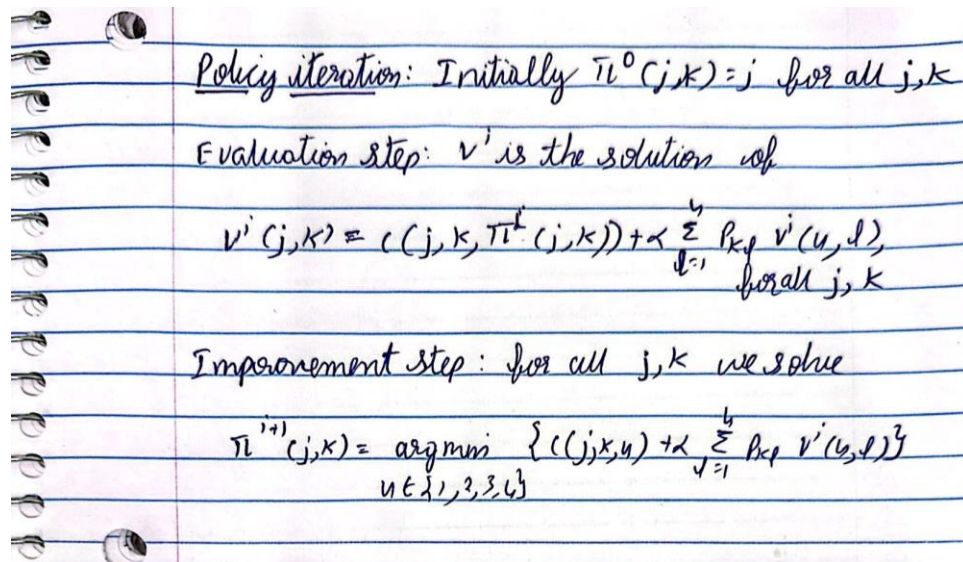 Policy iteration: Initially π⁰(j,k) = j for all j,k
Evaluation step: vⁱ is the solution of
vⁱ(j,k) = c(j,k,πⁱ(j,k)) + α Σ_{l=1}^{4} P_{kl} vⁱ(u,l),
for all j, k
Improvement step: for all j,k we solve
πⁱ⁺¹(j,k) = argmin {c(j,k,u) + α Σ_{l=1}^{4} P_{kl} vⁱ(u,l)}
u ∈ {1,2,3,4}